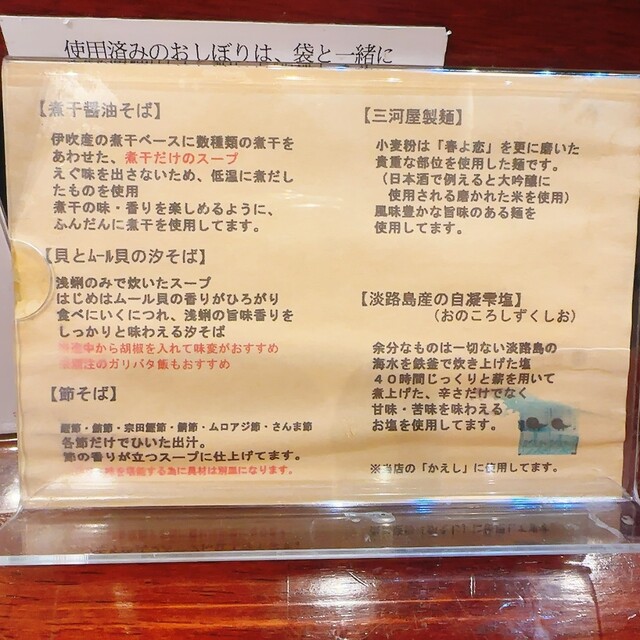 使用済みのおしぼりは、袋と一緒に
【煮干醤油そば】
伊吹産の煮干ベースに数種類の煮干を
あわせた、煮干だけのスープ
えぐ味を出さないため、低温に煮だし
たものを使用
煮干の味・香りを楽しめるように、
ふんだんに煮干を使用してます。
【貝とムール貝の汐そば】
浅蜊のみで炊いたスープ
はじめはムール貝の香りがひろがり
食べにいくにつれ、浅蜊の旨味香りを
しっかりと味わえる汐そば
途中から胡椒を入れて味変がおすすめ
のガリバタ飯もおすすめ
【節そば】
鰹節・鮪節・宗田鰹節・鯖節・ムロアジ節・さんま節
各節だけでひいた出汁。
節の香りが立つスープに仕上げてます。
を堪能する為に具材は別皿になります。
【三河屋製麺】
小麦粉は「春よ恋」を更に磨いた
貴重な部位を使用した麺です。
（日本酒で例えると大吟醸に
使用される磨かれた米を使用）
風味豊かな旨味のある麺を
使用してます。
【淡路島産の自凝雫塩】
（おのころしずくしお）
余分なものは一切ない淡路島の
海水を鉄釜で炊き上げた塩
４０時間じっくりと薪を用いて
煮上げた、辛さだけでなく
甘味・苦味を味わえる
お塩を使用してます。
※当店の「かえし」に使用してます。